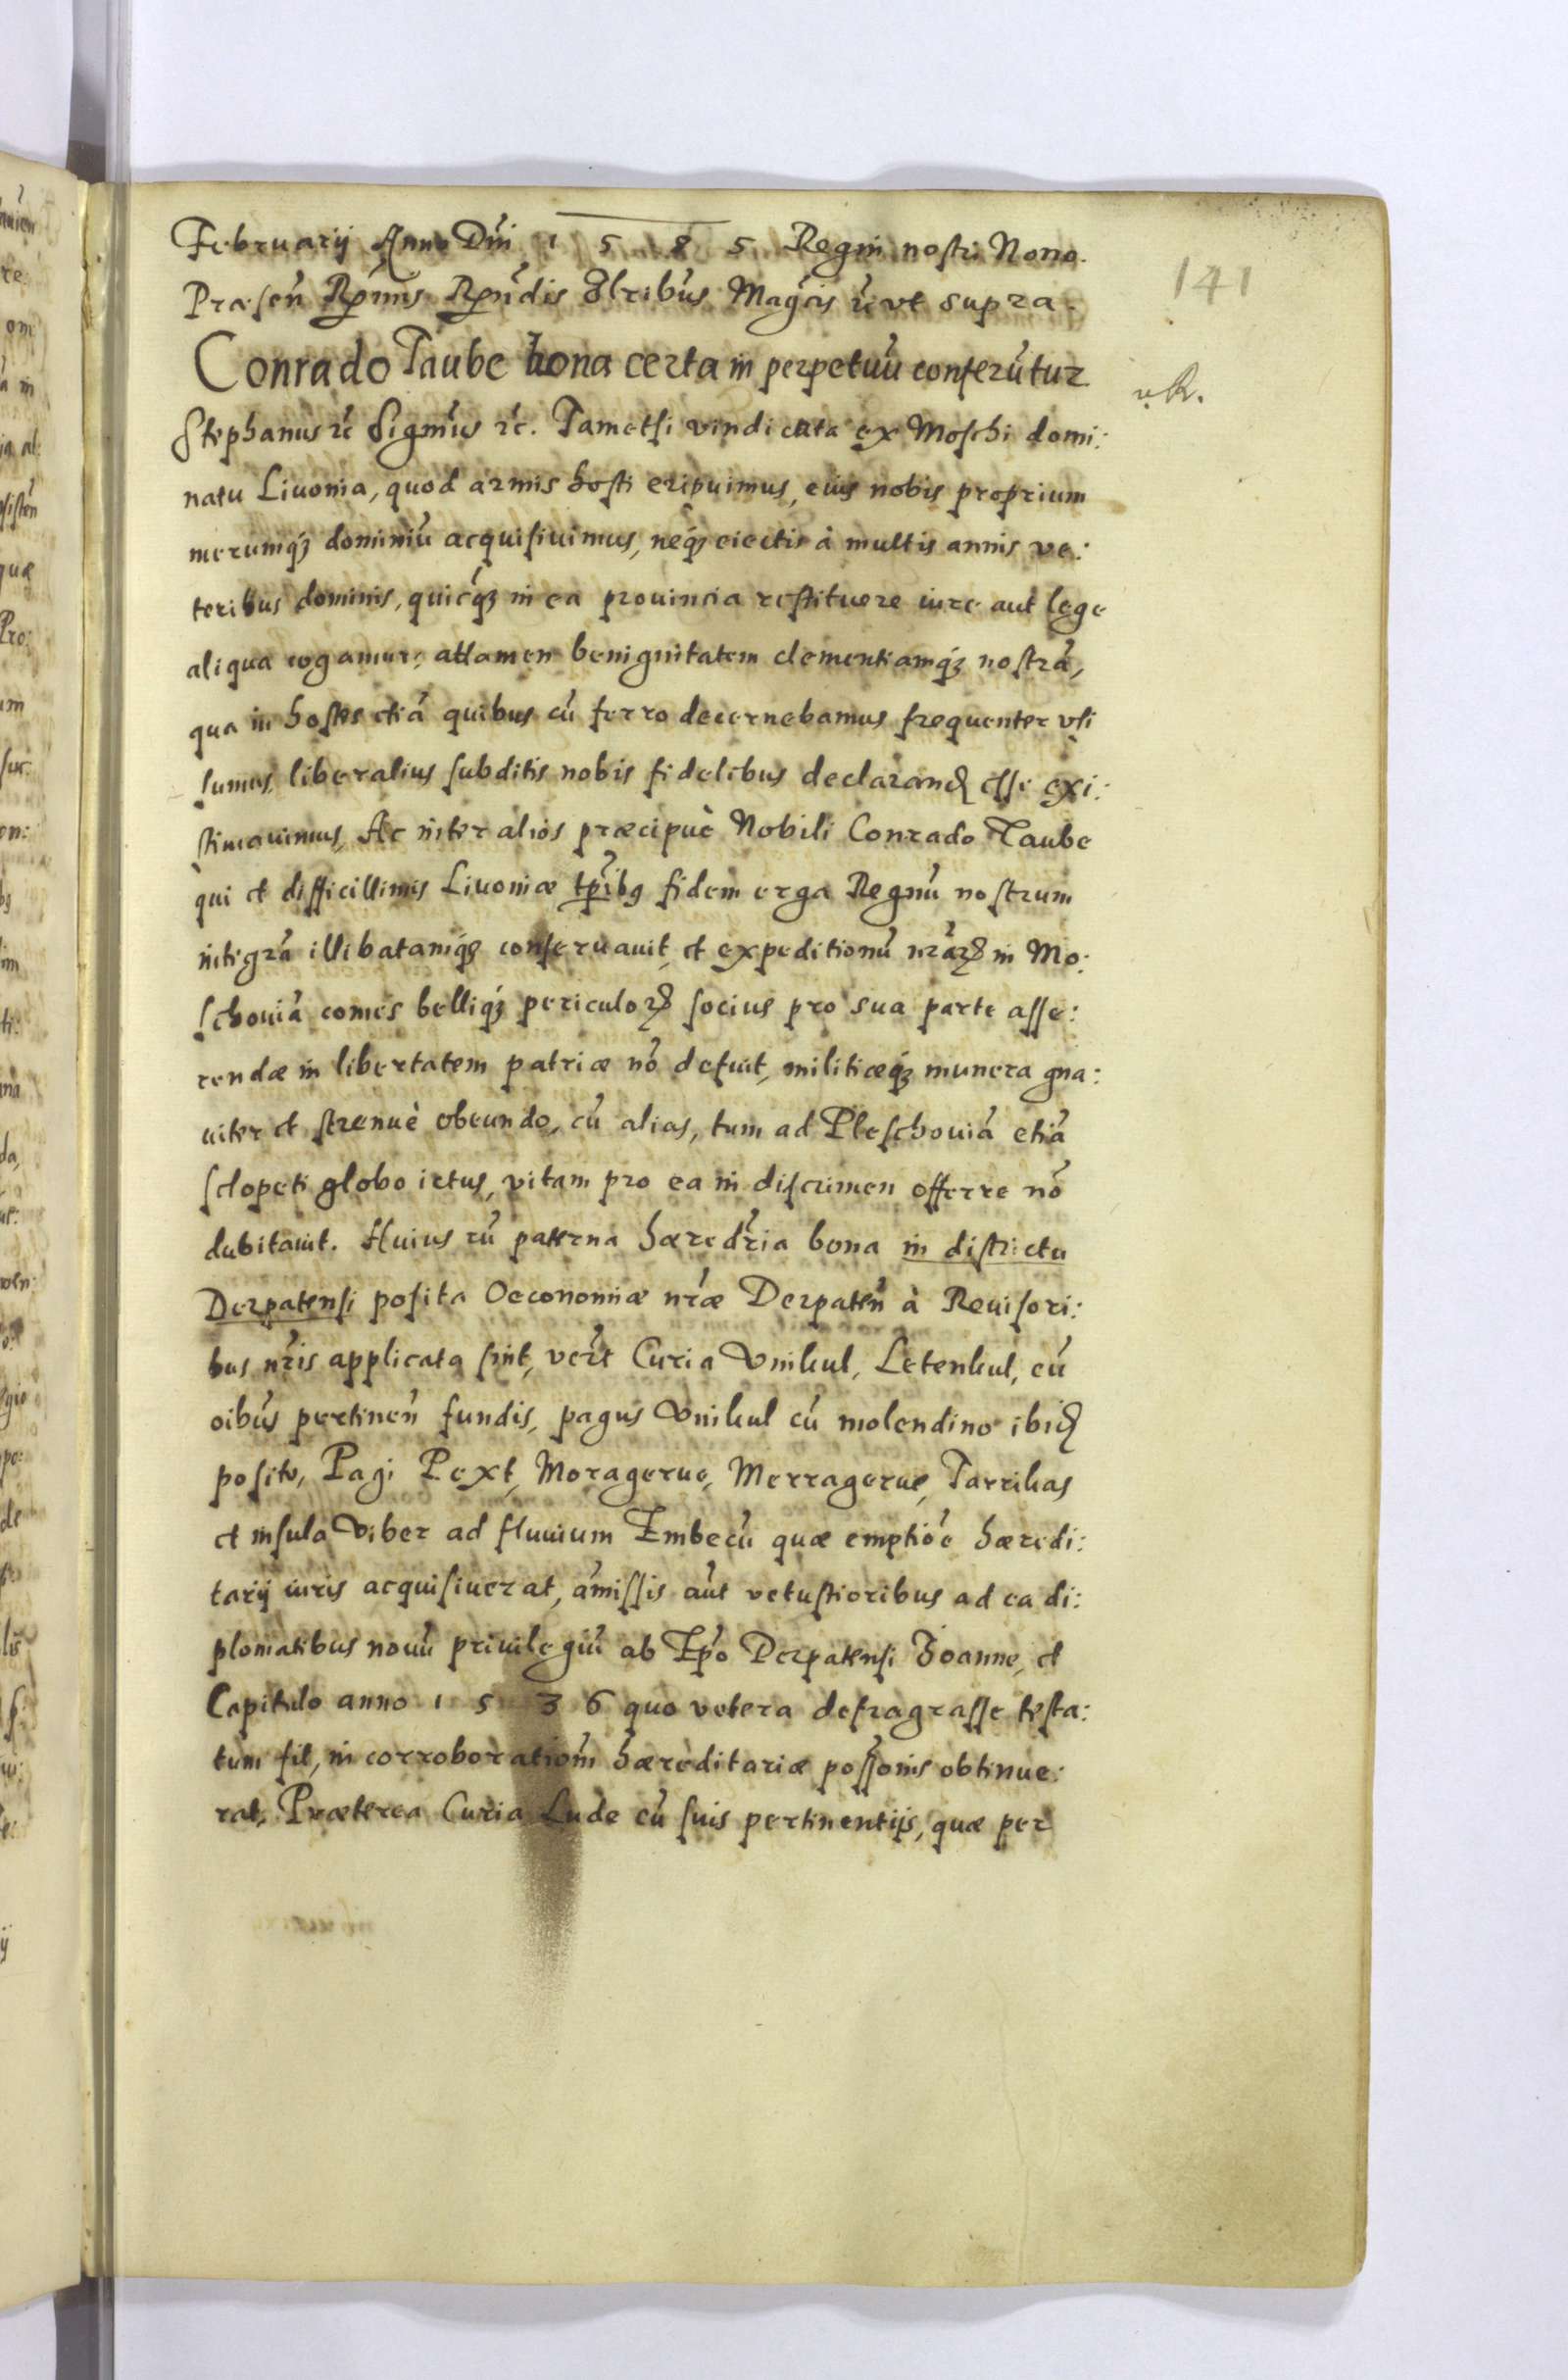 Februarij Anno Dni 1 5 8 5 Regni nostri Nono.
Præsen̄ Rmis Rndis Illribus Magcis rc vt supra.
141
Conrado Taube bona certa in perpetuū conferūtur
Stephanus rc Signius rc. Tametsi vindicata ex Moschi domi:
natu Liuonia, quod armis hosti eripuimus, eius nobis proprium
merumq3 dominiū acquisiuimus, neq3 eiectis à multis annis ve:
teribus dominis, quicq3 in ea prouincia restituere iure aut lege
aliqua cogamur, attamen benignitatem clementiamq3 nostrā,
qua in hostes etiā quibus cū ferro decernebamus frequenter vsi
sumus, liberalius subditis nobis fidelibus declarand esse exi:
stimauimus, Ac inter alios præcipuè Nobili Conrado Taube
qui et difficillimis Liuoniæ tpribg fidem erga Regnū nostrum
integrā illibatamq3 conseruauit, et expeditionū nrarꝝ in Mo:
schouiā comes belliq3 periculorꝝ socius pro sua parte asse:
rendæ in libertatem patriæ nō defuit, militiæq3 munera gna:
uiter et strenuè obeundo, cū alias, tum ad Pleschouiā etiā
sclopeti globo ictus, vitam pro ea in discrimen offerre nō
dubitauit. Huius cū paterna hæredria bona in districtu
Derpatensi posita Oeconomiæ nræ Derpaten̄ à Reuisori:
bus nris applicata sint, vert Curia Vnikul, Letenkul, cū
oibus pertinen̄ fundis, pagus Vnikul cū molendino ibid
posito, Pagi Pext, Moragerue, Merragerue, Tarrikas
et insula Viber ad fluuium Embecū quæ emptioē hæredi:
tarij iuris acquisiuerat, amissis aūt vetustioribus ad ea di:
plomatibus nouū priuilegiū ab Epo Derpatensi Joanne, et
Capitulo anno 1 5 3 6 quo vetera defragrasse testa:
tum fit, in corroborationē hæreditariæ possonis obtinue:
rat, Præterea Curia Lude cū suis pertinentijs, quæ per